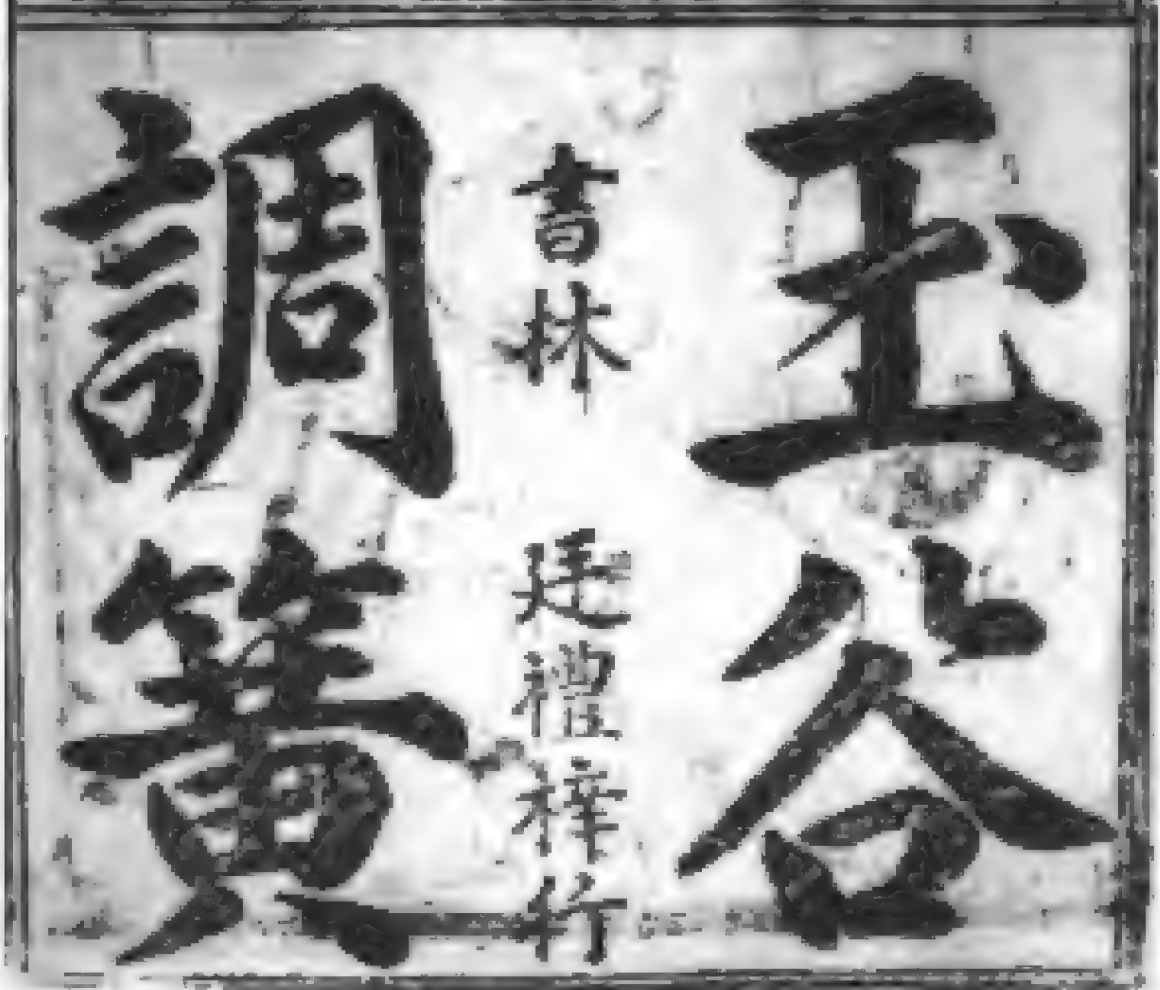 玉谷
書林 廷禮梓行
調簧